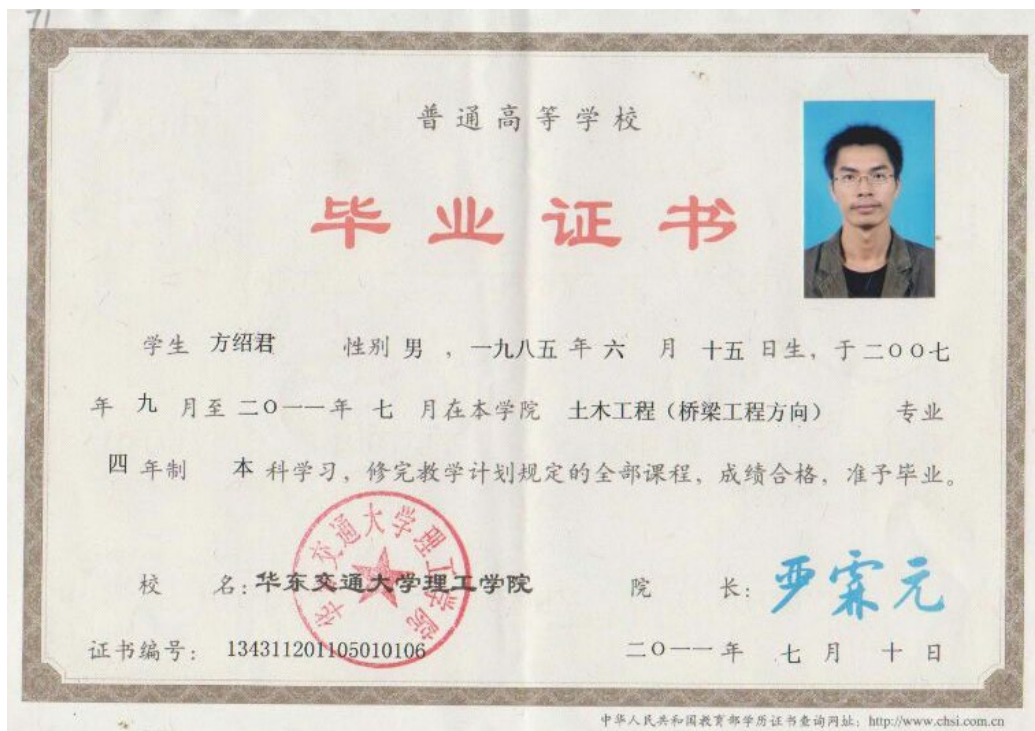 普通高等学校
毕业证书
学生 方绍君 性别 男 ，一九八五 年 六 月 十五 日生，于二〇〇七
年 九 月至 二〇一一年 七 月在本学院 土木工程（桥梁工程方向） 专业
四 年制 本 科学习，修完教学计划规定的全部课程，成绩合格，准予毕业。
华东交通大学理工学院
校 名：华东交通大学理工学院 院 长：
证书编号： 134311201105010106 二〇一一年 七 月 十 日
中华人民共和国教育部学历证书查询网址：http://www.chsi.com.cn